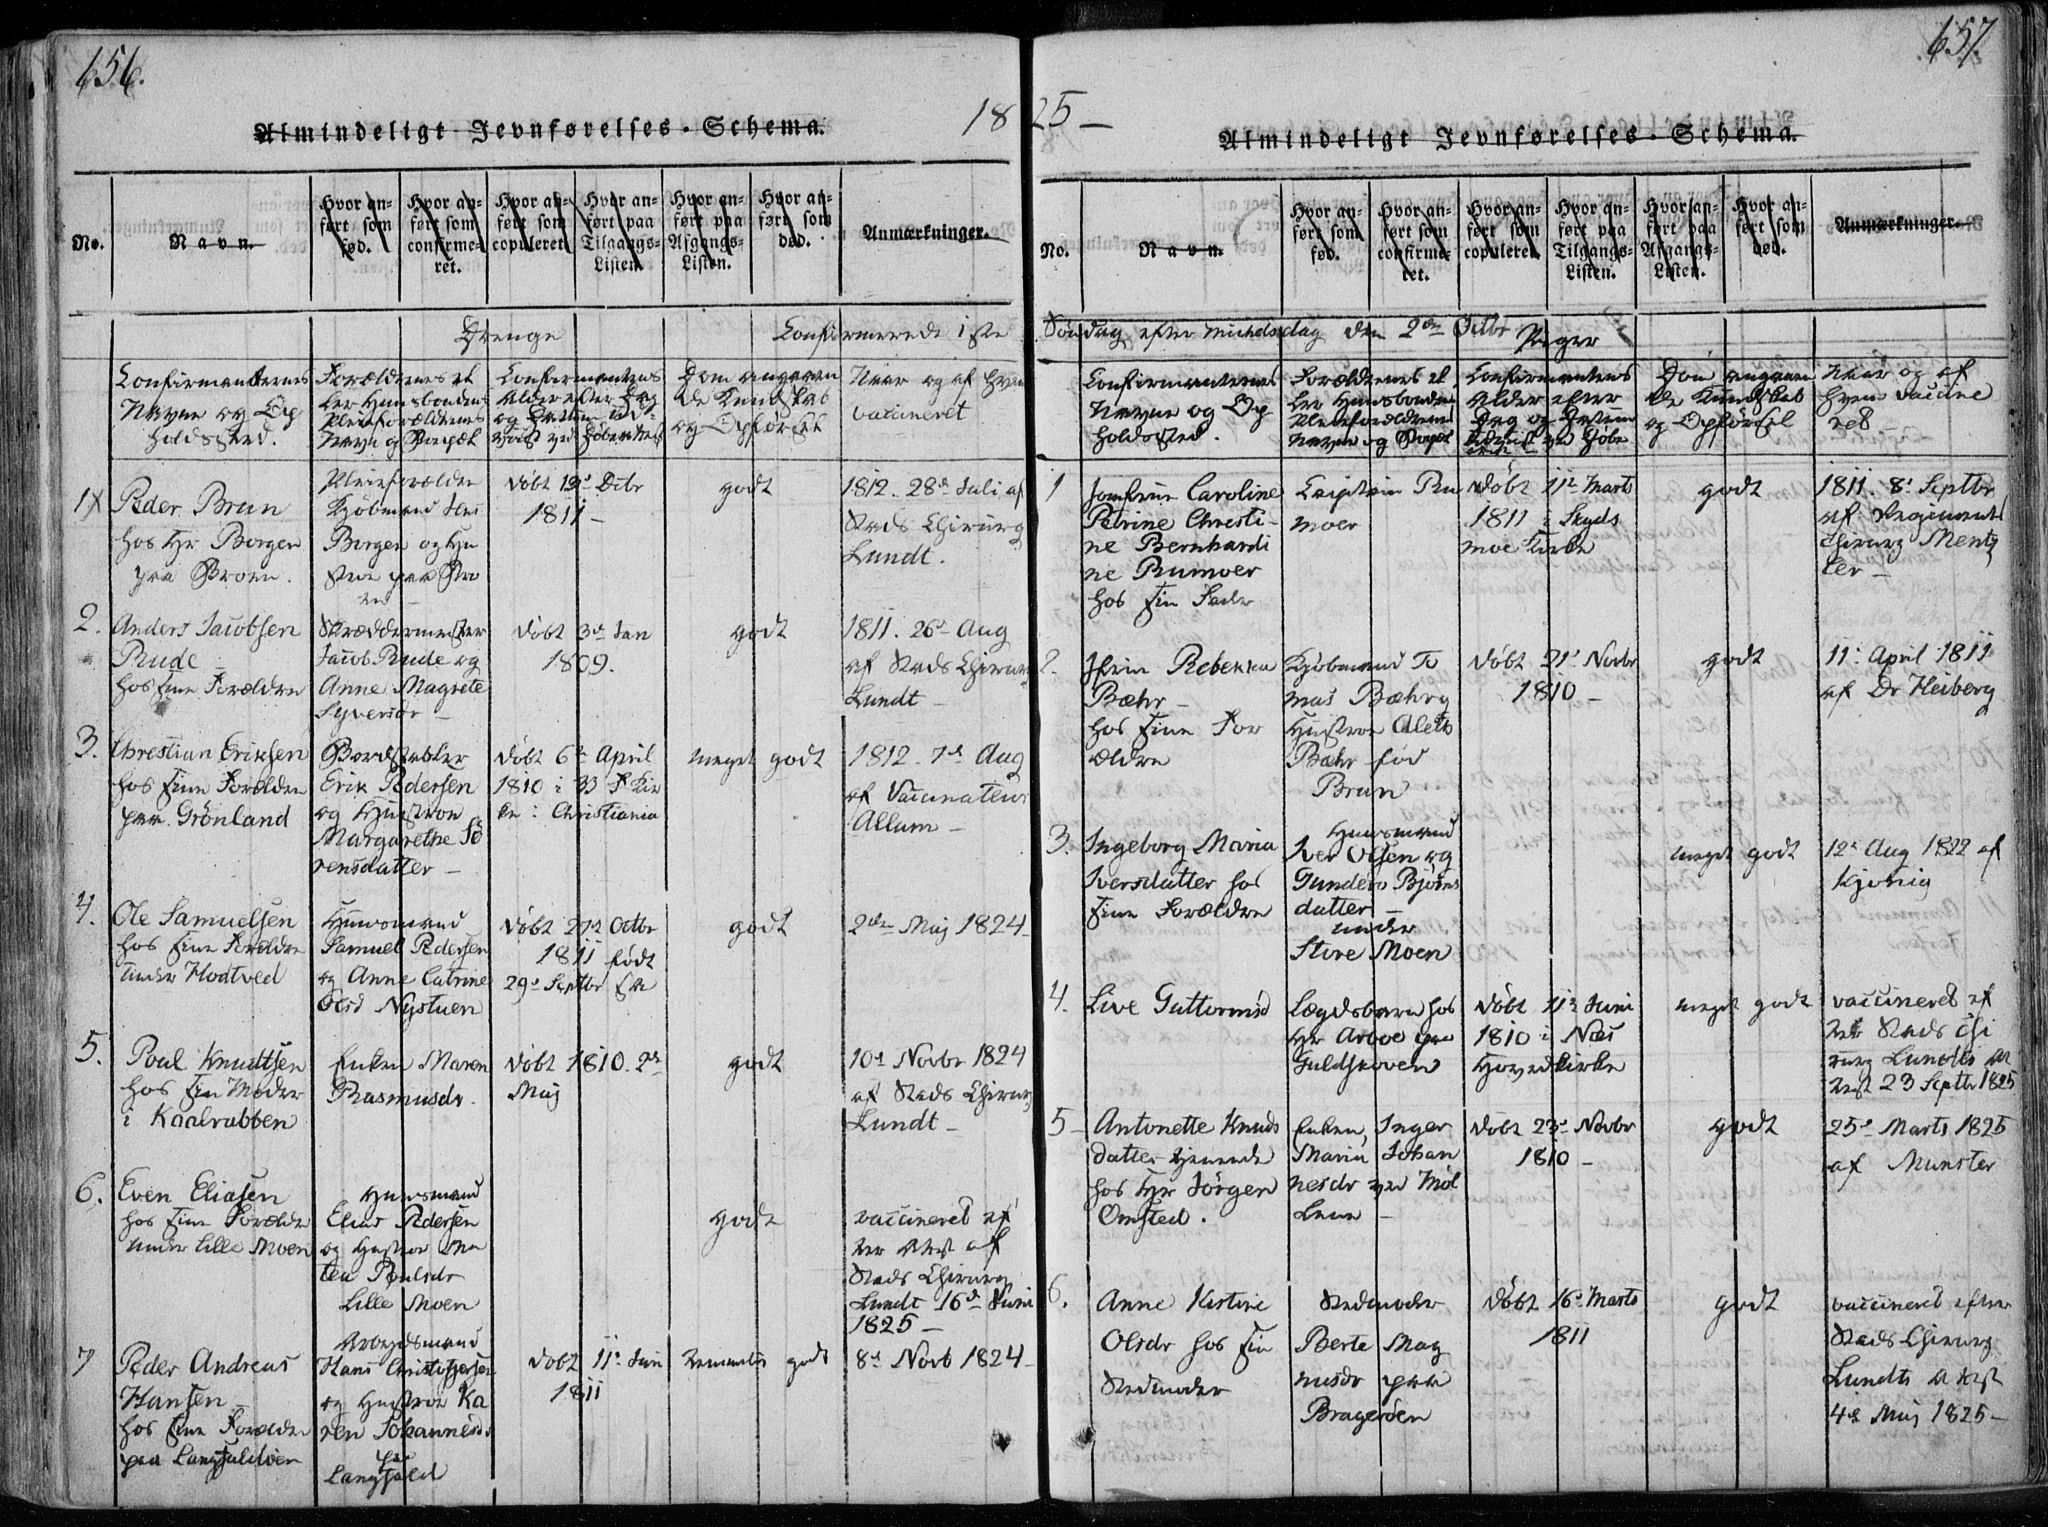 656.
Almindeligt Jevnførelses-Schema.
18
No.
Navn.
Hvor anført som fød.
Hvor anført som confirmeret.
Hvor anført som copuleret.
Hvor anført paa Tilgangs-Listen.
Hvor anført paa Afgangs-Listen.
Hvor anført som død.
Anmærkninger.
Drenge
Confirmerede 1ste
Confirmanternes
Navne og Op
holdssted.
Forældrenes el
ler Huusbondens
Pleieforældrenes
Navn og Bopæl
Confirmantens
Alder efter Dag
og Datum
Dom angaaen
de Kundskab
og Opførsel
Naar og af hvem
vaccineret
1
Peder Brun
hos Hr Borgen
paa Broen.
Pleieforældre
Kjøbmand
Borgen og Hu
stroe paa Bro
en
døbt 12 Octbr
1811
godt
1812. 28de Juli af
Stads Chirurg
Lundt.
2.
Anders Jacobsen
Rude
hos sine Forældre
Skræddermester
Jacob Rude og
Anne Magrete
Syversdr
døbt 3de Jan
1809.
godt
1811. 26de Aug
af Stads Chirurg
Lundt
3.
Christian Eriksen
hos sine Forældre
paa Grønland
Bordstabler
Erik Pedersen
og Hustroe
Margarethe Sö
rensdatter
døbt 6te April
1810 i
ke i Christiania
meget godt
1812. 7de Aug
af Vaccinateur
Allum
4.
Ole Samuelsen
hos sine Forældre
under Hodtved
Huusmand
Samuel Pedersen
og Anne Catrine
Olsd Nystuen
døbt 27de Octbr
1811 født
29de Septbr
godt
2den Maj 1824
5.
Poul Knudtsen
hos sin Moder
i Kaalrabben
Enken Maren
Rasmusdr.
døbt 1810. 2de
Maj
godt
10de Novbr 1824
af Stads Chirurg
Lundt
6.
Even Eliasen
hos sine Forældre
under Lille Moen
Huusmand
Elias Pedersen
og Hustroe Ma
ren Poulsdr
Lille Moen
godt
vaccineret ef
ter Attest af
Stads Chirurg
Lundt 16de Juni
1825
7
Peder Andreas
Hansen
hos sine Forældre
paa
Arbeidsmand
Hans Christophersen
og Hustroe Ka
ren Johannesdr
paa
døbt 11te Juni
1811
temmelig godt
8de Novb 1824
657.
25
Almindeligt Jevnførelses-Schema.
No.
Navn.
Hvor anført som fød.
Hvor anført som confirmeret.
Hvor anført som copuleret.
Hvor anført paa Tilgangs-Listen.
Hvor anført paa Afgangs-Listen.
Hvor anført som død.
Anmærkninger.
Søndag efter Michelsdag den 2den Octbr
Piger
Confirmanternes
Navne og Op
holdssted.
Forældrenes el
ler Huusbondens
Pleieforældrenes
Navne og Bopæl
Confirmantens
Alder efter
Dag og Datum
Dom angaaen
de Kundskab
og Opførsel
Naar og af
hvem vaccine
ret
1
Jomfrue Caroline
Petrine Christi-
ne Bernhardi
ne Rumoer
hos sin Fader
Capitain Ru
moer
døbt 11te Marts
1811 i Skyds
moe Kirke
godt
1811. 8de Septbr
af Regiments
Chirurg Mentz
ler
2.
Jfrue Rebekka
Bæhr
hos sine For
ældre
Kjøbmand To
mas Bæhr og
Hustroe Aleth
Bæhr fød
Brun
døbt 21de Novbr
1810
godt
11te April 1811
af Dr Heiberg
3.
Ingeborg Maria
Iversdatter hos
sine Forældre
Huusmand
Iver Olsen og
Gunders Bjørns
datter
under
Store Moen
meget godt
12te Aug 1822 af
Kjønig
4.
Live Guttormsd
Lægdsbarn hos
Hr Arboe paa
Guldskoven
døbt 11te Juni
1810 i Næs
Hovedkirke
meget godt
vaccineret ef
ter Stads Chi
rurg Lundts At
test 23 Septbr 1825
5
Antonette Knuds
datter
hos Hr Jörgen
Omsted.
Enken Inger
Maria Johan
nesdr ved Møl
len
døbt 23de Novbr
1810
godt
25de Marts 1825
af Munster
6.
Anne Kistine
Olsdr hos sin
Stedmoder
Stedmoder
Berte Mag
nusdr paa
Bragerøen
døbt 16de Marts
1811
godt
vaccineret efter
Stads Chirurg
Lundts Attest
4de Maj 1825